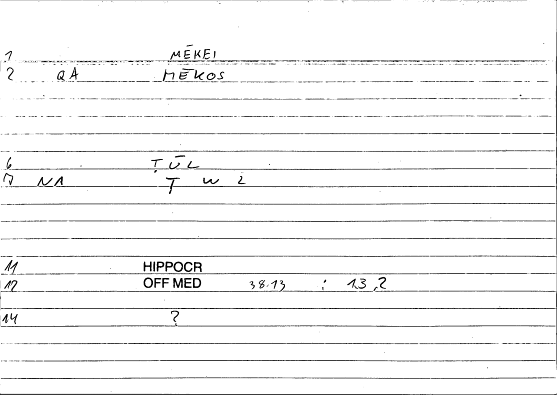 1 MĒKEI
2 QA MĒKOS
6 ṬŪL
7 NA Ṭ W L
11 HIPPOCR
12 OFF MED 38.13 : 13,2
14 ?